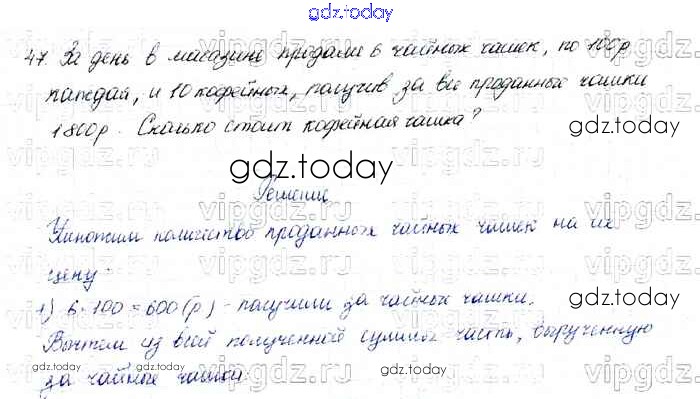 gdz.today
47. За день в магазине продали 6 чайных чашек, по 100р
каждая, и 10 кофейных, получив за все проданные чашки
1800р. Сколько стоит кофейная чашка?
gdz.today
Решение
Умножим количество проданных чайных чашек на их
цену.
1) 6·100=600(р) - получили за чайные чашки.
Вычтем из всей полученной суммы часть, вырученную
за чайные чашки.
gdz.today
gdz.today
gdz.today
vipgdz.ru